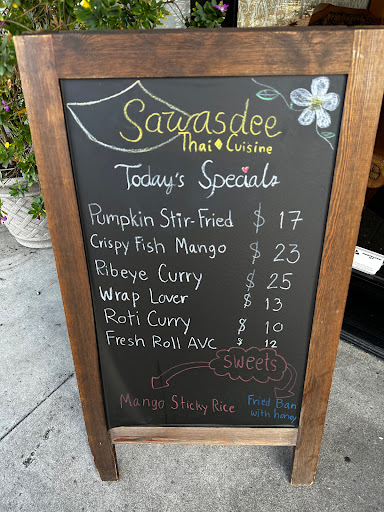 Sawasdee
Thai Cuisine
Today's Specials
Pumpkin Stir-Fried $ 17
Crispy Fish Mango $ 23
Ribeye Curry $ 25
Wrap Lover $ 13
Roti Curry $ 10
Fresh Roll AVC $ 12
Sweets
Mango Sticky Rice
Fried Ban
with honey